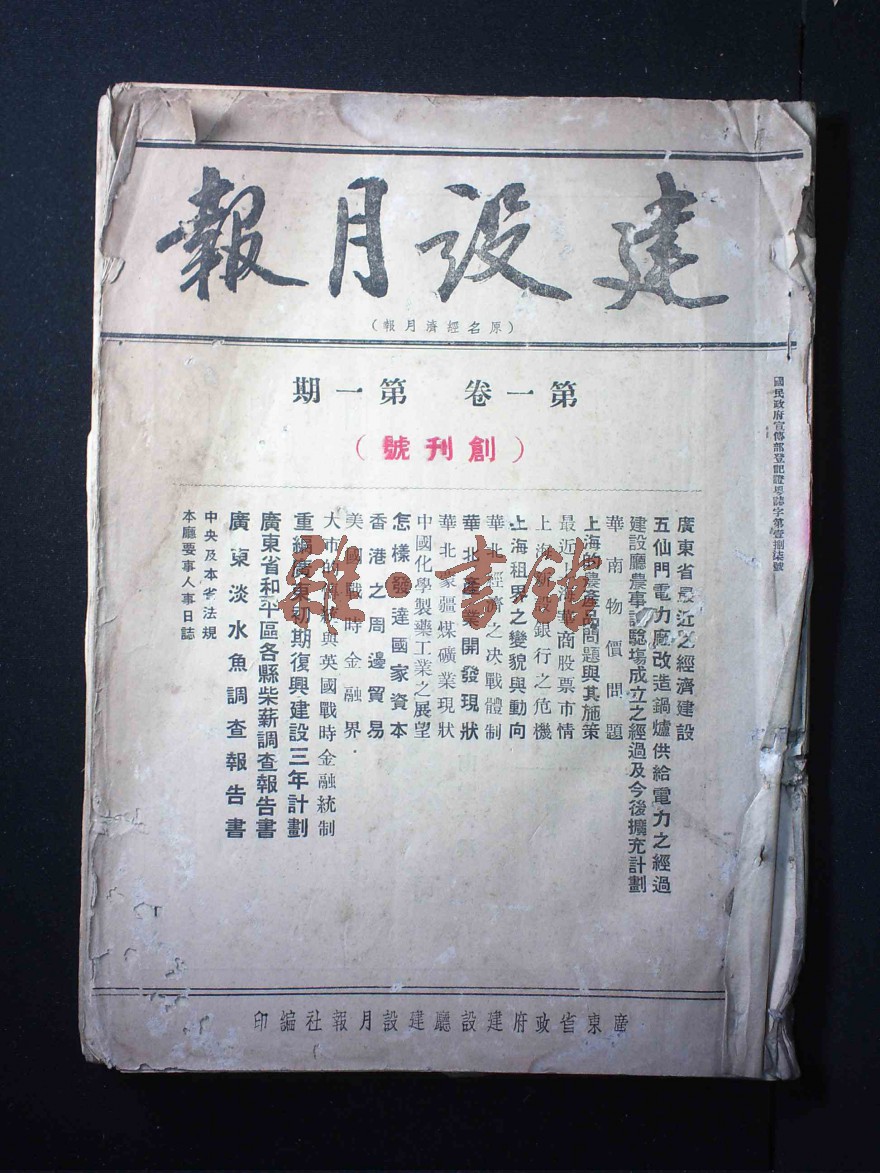 建設月報
（原名經濟月報）
第一卷 第一期
（創刊號）
國民政府宣傳部登記證粵誌字第壹捌柒號
廣東省最近之經濟建設
五仙門電力廠改造鍋爐供給電力之經過
建設廳農事試驗場成立之經過及今後擴充計劃
華南物價問題
上海的農產品問題與其施策
最近上海華商股票市情
上海新設銀行之危機
上海租界之變貌與動向
華北經濟之決戰體制
華北產業開發現狀
華北蒙疆煤礦業現狀
中國化學製藥工業之展望
怎樣發達國家資本
香港之周邊貿易
美國戰時金融界
大市的與英國戰時金融統制
重編廣東初期復興建設三年計劃
廣東省和平區各縣柴薪調查報告書
廣東淡水魚調查報告書
中央及本省法規
本廳要事人事日誌
廣東省政府建設廳建設月報社編印
雜·書館